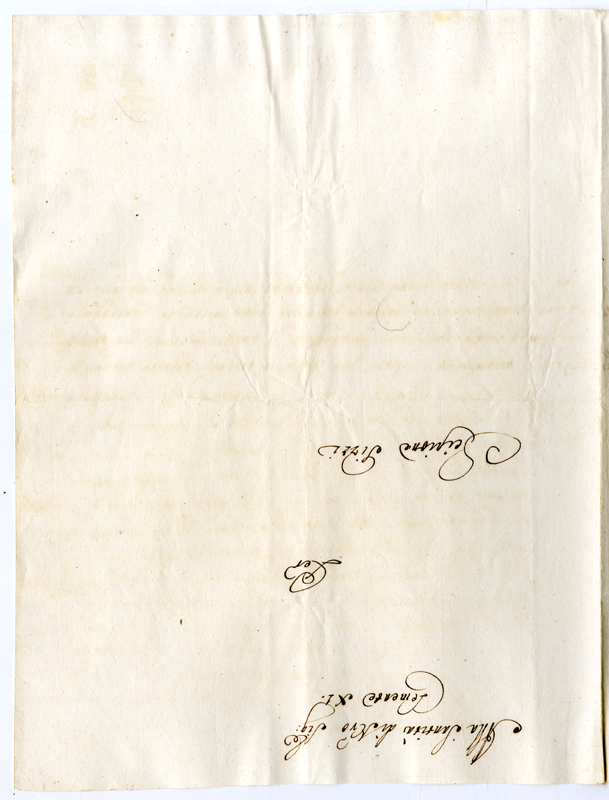 Alla Santità di Nro Sig:re
Clemente XI.
Per
Scipione